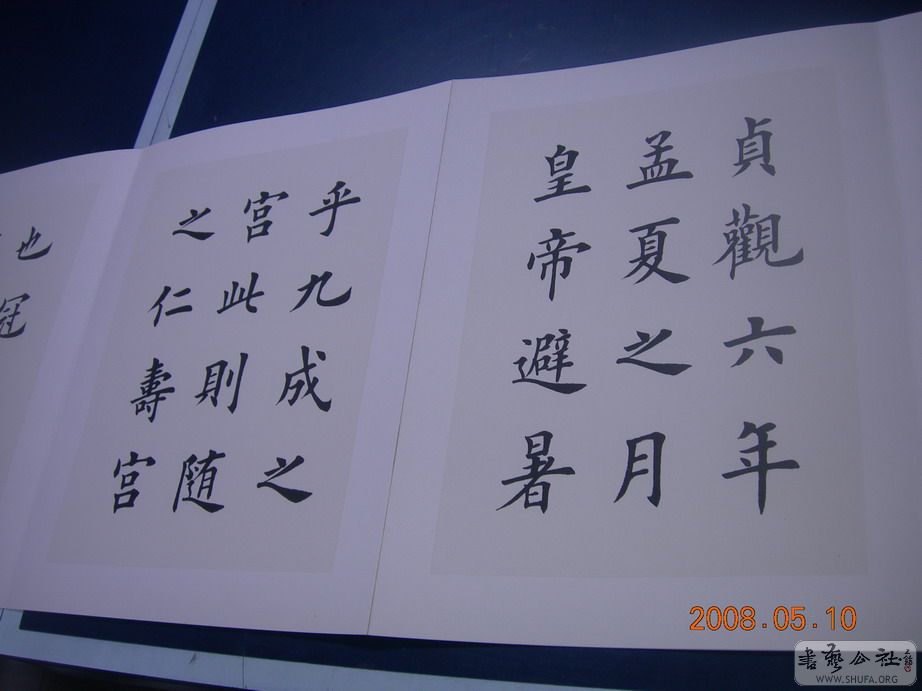 貞觀六年
孟夏之月
皇帝避暑
乎九成之
宮此則随
之仁壽宮
也冠
2008.05.10
書藝公社
WWW.SHUFA.ORG